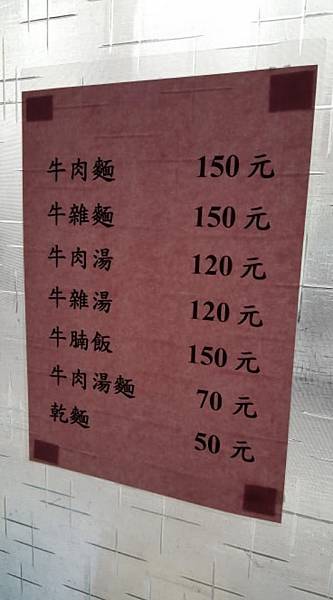 牛肉麵 150 元
牛雜麵 150 元
牛肉湯 120 元
牛雜湯 120 元
牛腩飯 150 元
牛肉湯麵 70 元
乾麵 50 元